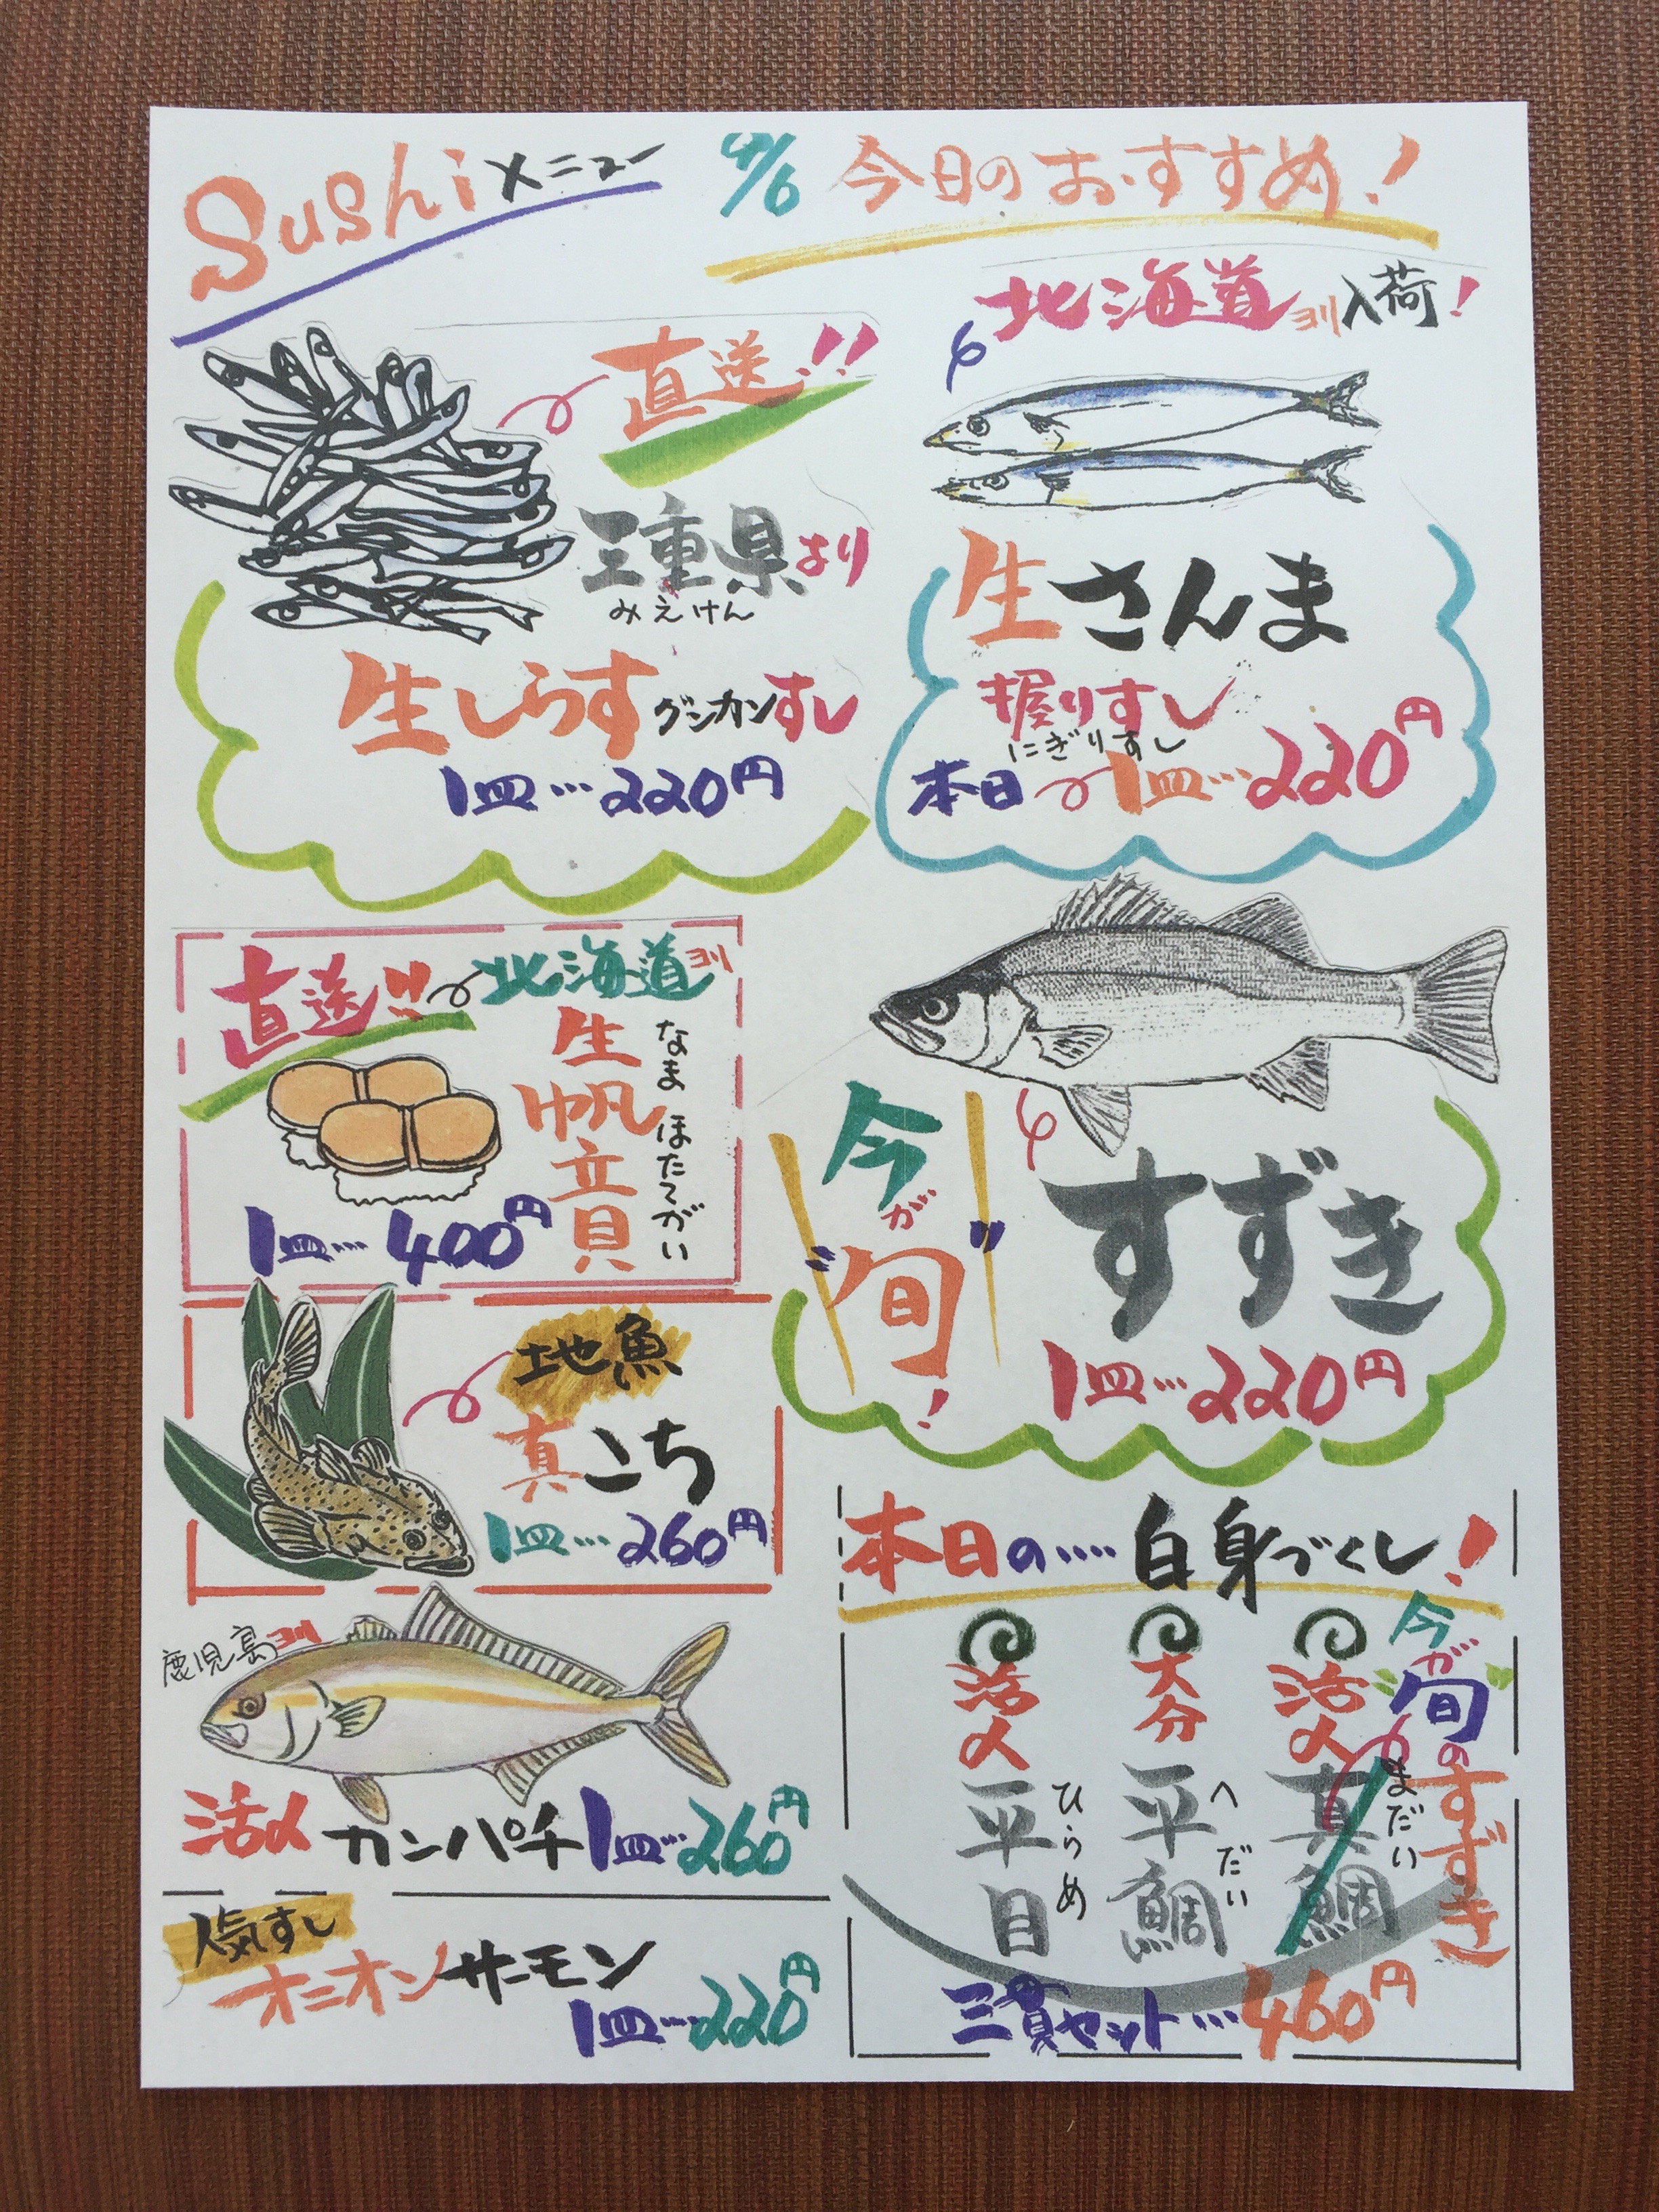 Sushi メニュー
9/6 今日のおすすめ!
直送!!
三重県より
みえけん
生しらすグンカンすし
1皿…220円
北海道ヨリ入荷!
生さんま
握りすし
にぎりすし
本日 1皿…220円
直送!! 北海道ヨリ
生帆立貝
なまほたてがい
1皿…400円
今が"旬"!
すずき
1皿…220円
地魚
真こち
1皿…260円
鹿児島ヨリ
活〆カンパチ1皿…260円
人気すし
オニオンサーモン
1皿…220円
本日の…白身づくし!
活〆平目
ひらめ
大分平鯛
へだい
活〆真鯛
まだい
今が旬のすずき
三貫セット…460円